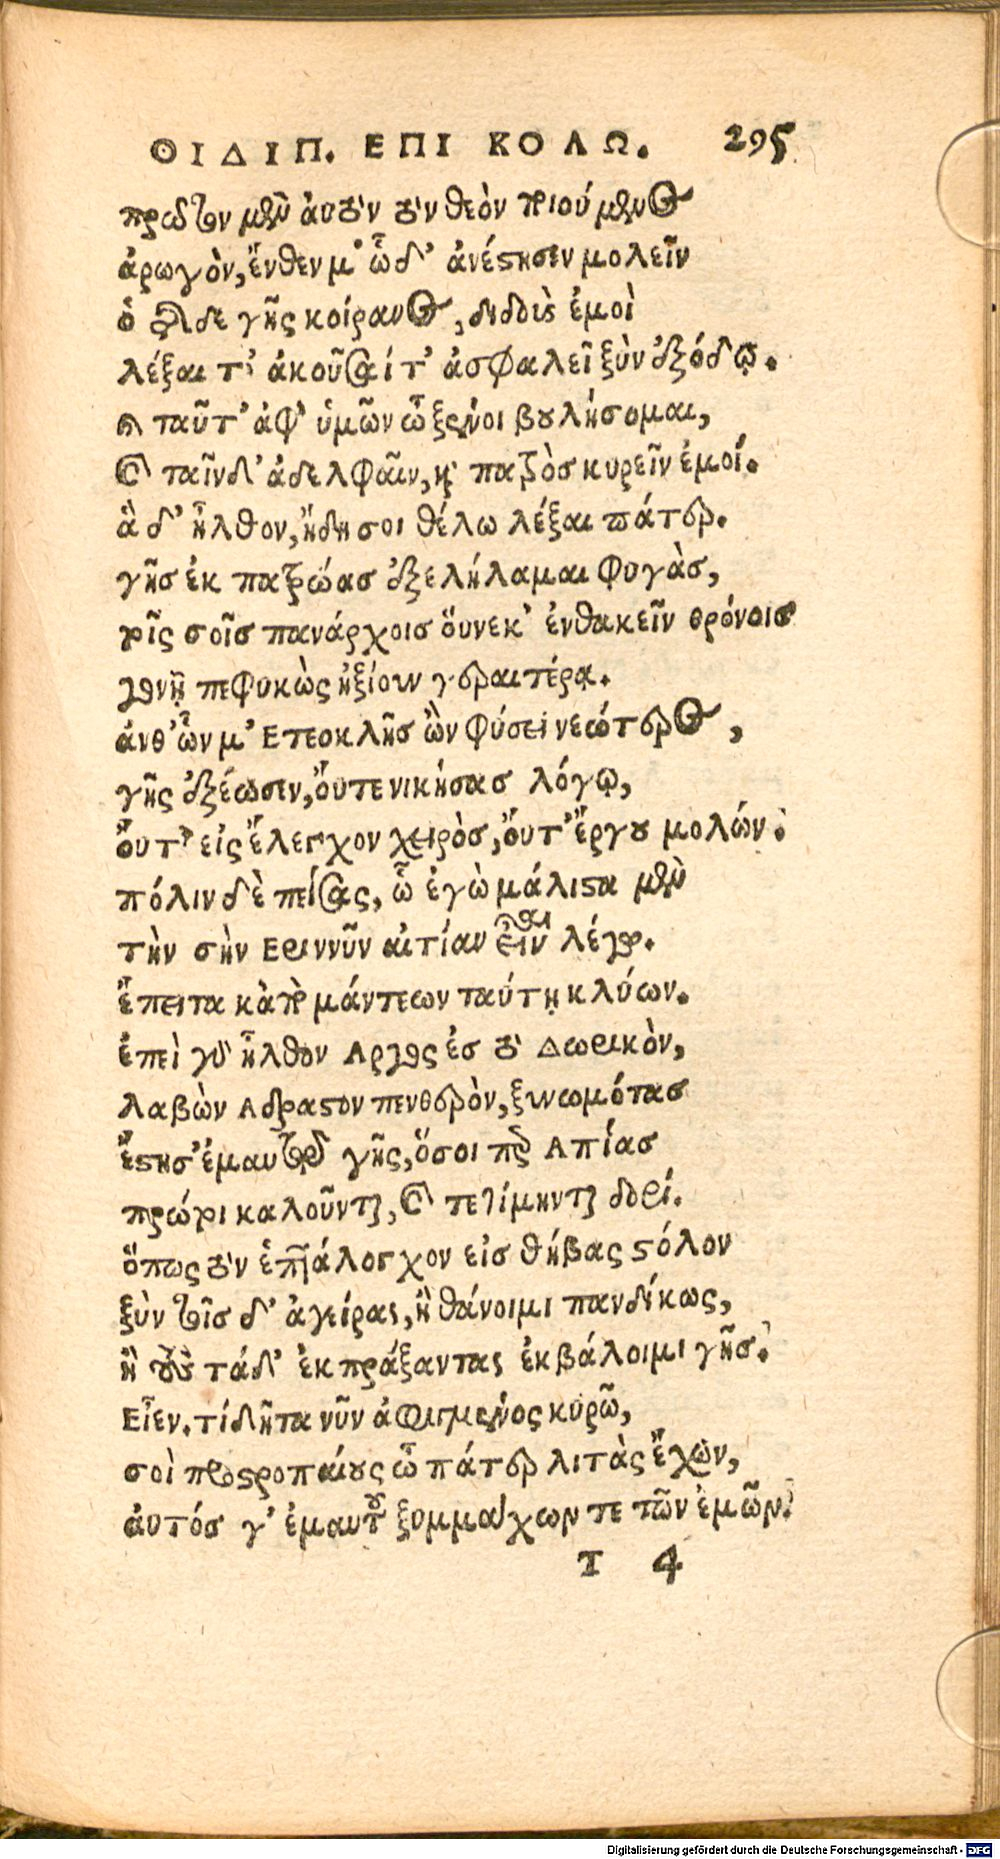 ΟΙΔΙΠ. ΕΠΙ ΚΟΛΩ. 295
πρῶτον μὲν ἀυτὸν τὸν θεὸν ποιούμενος
ἀρωγὸν, ἔνθεν μ' ὧδ' ἀνέστησεν μολεῖν
ὁ τῆσδε γῆς κοίρανος, διδοὺς ἐμοὶ
λέξαι τ' ἀκοῦσαί τ' ἀσφαλεῖ ξὺν ἐξόδῳ.
καὶ ταῦτ' ἀφ' ὑμῶν ὦ ξένοι βουλήσομαι,
καὶ ταῖνδ' ἀδελφαῖν, καὶ πατρὸσ κυρεῖν ἐμοί.
ἃ δ' ἦλθον, ἤδη σοι θέλω λέξαι πάτερ.
γῆσ ἐκ πατρώασ ἐξελήλαμαι φυγὰσ,
τοῖς σοῖσ πανάρχοισ ὅυνεκ' ἐνθακεῖν θρόνοισ
γονῇ πεφυκὼς ἠξίουν γεραιτέρᾳ.
ἀνθ' ὧν μ' Ετεοκλῆσ ὢν φύσει νεώτερος,
γῆς ἐξέωσεν, ὄυτε νικήσασ λόγῳ,
ὄυτ' εἰς ἔλεγχον χειρὸσ, ὄυτ' ἔργου μολών·
πόλιν δὲ πείσας, ὧ ἐγὼ μάλιστα μὲν
τὴν σὴν Εριννῦν αἰτίαν εἶναι λέγω.
ἔπειτα κἀπὸ μάντεων ταύτῃ κλύων.
ἐπεὶ γὰρ ἦλθον Αργος ἐσ τὸ Δωρικὸν,
λαβὼν Αδραστον πενθερὸν, ξυνωμότασ
ἔστησ' ἐμαυτῷ γῆς, ὅσοι περ Απίασ
πρῶτοι καλοῦνται, καὶ τετίμηνται δορί.
ὅπως τὸν ἑπτάλογχον εἰσ θήβας στόλον
ξὺν τοῖσ δ' ἀγείρας, ἢ θάνοιμι πανδίκως,
ἢ τοὺς τάδ' ἐκπράξαντας ἐκβάλοιμι γῆσ.
Εἶεν. τί δῆτα νῦν ἀφιγμένος κυρῶ,
σοὶ προστροπαίους ὦ πάτερ λιτὰς ἔχων,
ἀυτόσ γ' ἐμαυτοῦ ξυμμάχων τε τῶν ἐμῶν·
T 4
Digitalisierung gefördert durch die Deutsche Forschungsgemeinschaft - DFG